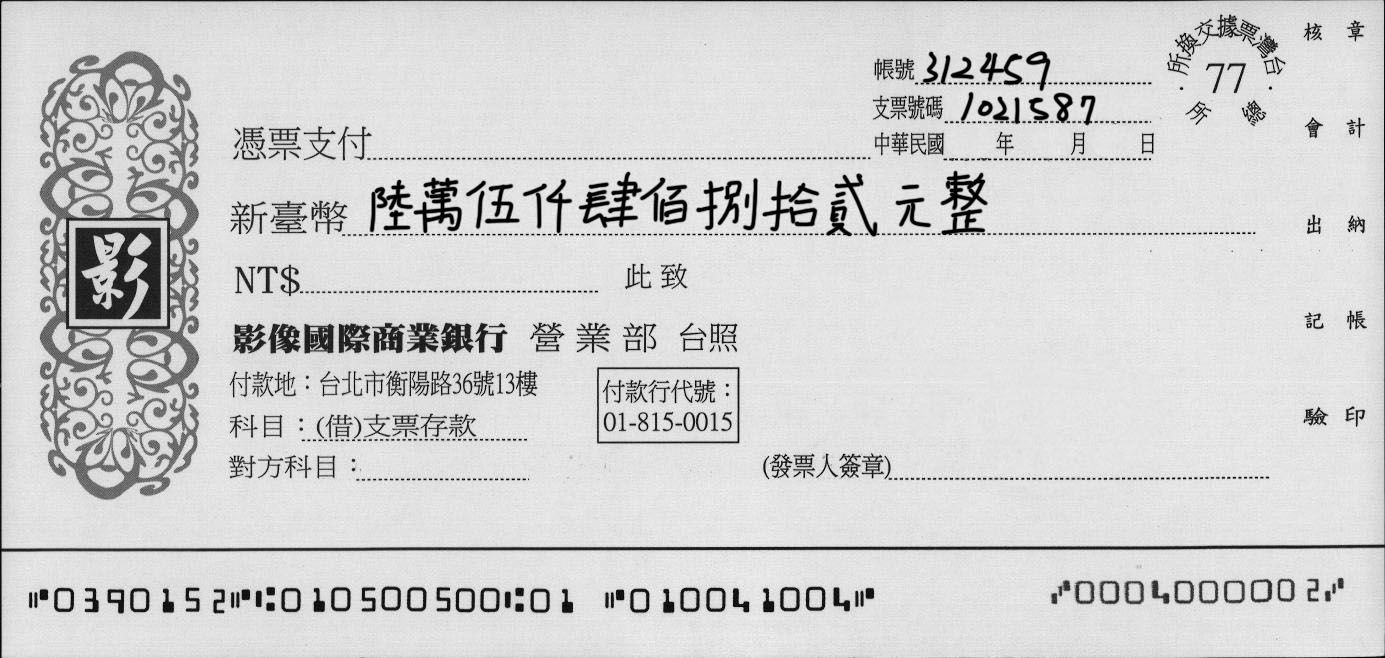 帳號 312459
支票號碼 1021587
中華民國 年 月 日
台灣票據交換所
77
總所
憑票支付
新臺幣 陸萬伍仟肆佰捌拾貳元整
NT$ 此致
影
影像國際商業銀行 營業部 台照
付款地：台北市衡陽路36號13樓
科目：(借)支票存款
對方科目：
付款行代號：
01-815-0015
(發票人簽章)
核章
會計
出納
記帳
驗印
⑈0390152⑈⑆010500500⑆01 ⑈010041004⑈ ⑇0004000002⑇